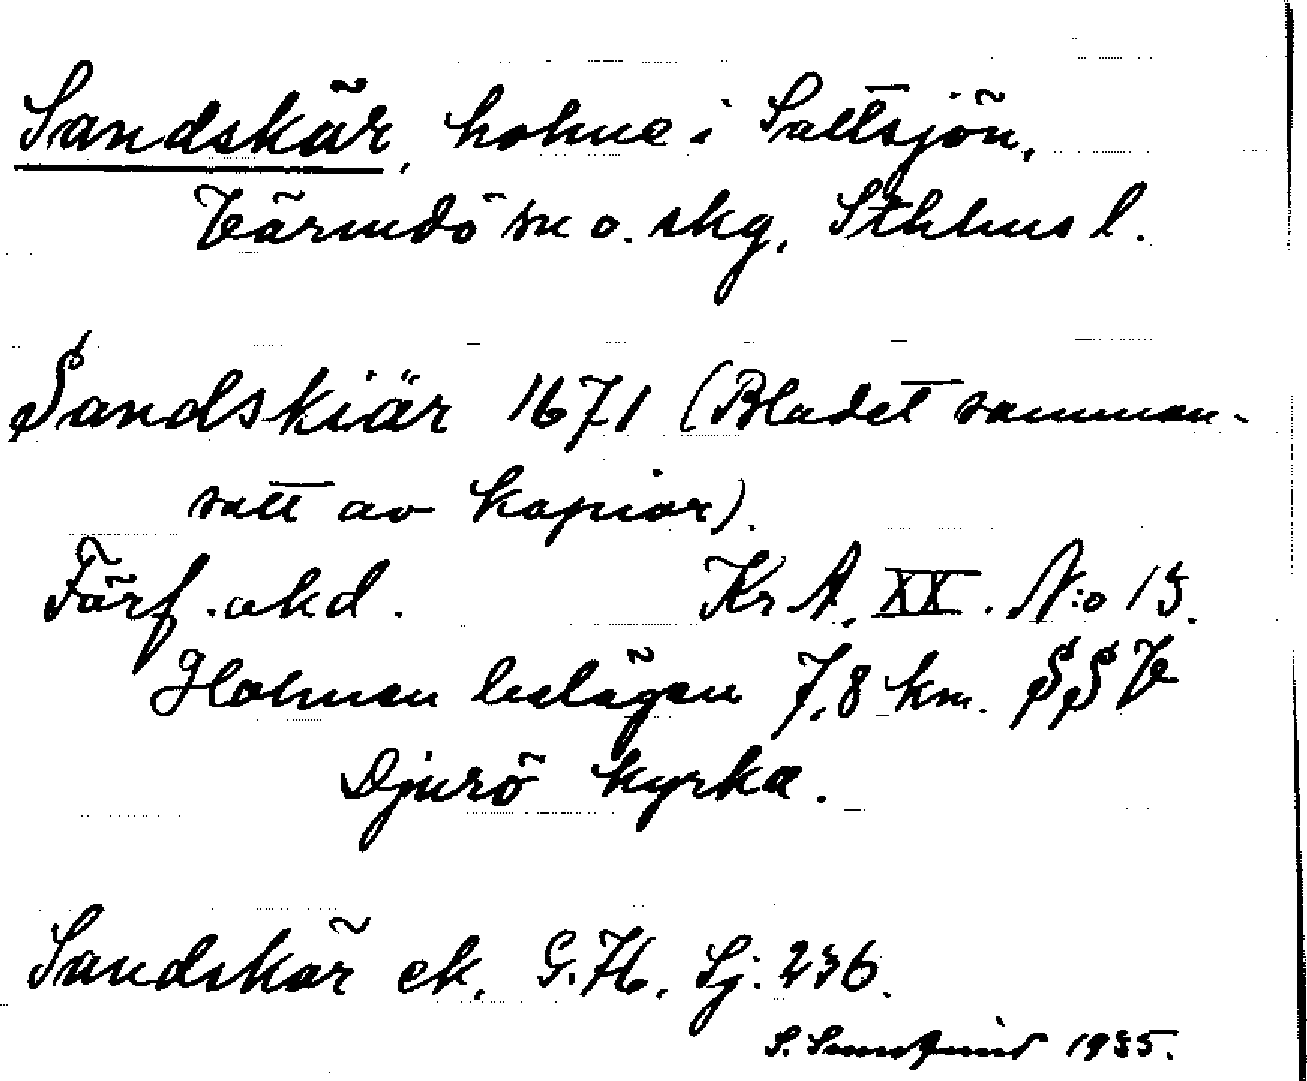 Sandskär, holme i Saltsjön,
Värmdö sn o. skg, Sthlms l.
Sandskiär 1671 (Bladet samman-
satt av kopior).
Förf. okd. Kr A. XX. N:o 13.
Holmen belägen 7,8 km. SSV
Djurö kyrka.
Sandskär ek. G.K. Sj: 236.
S. 1935.